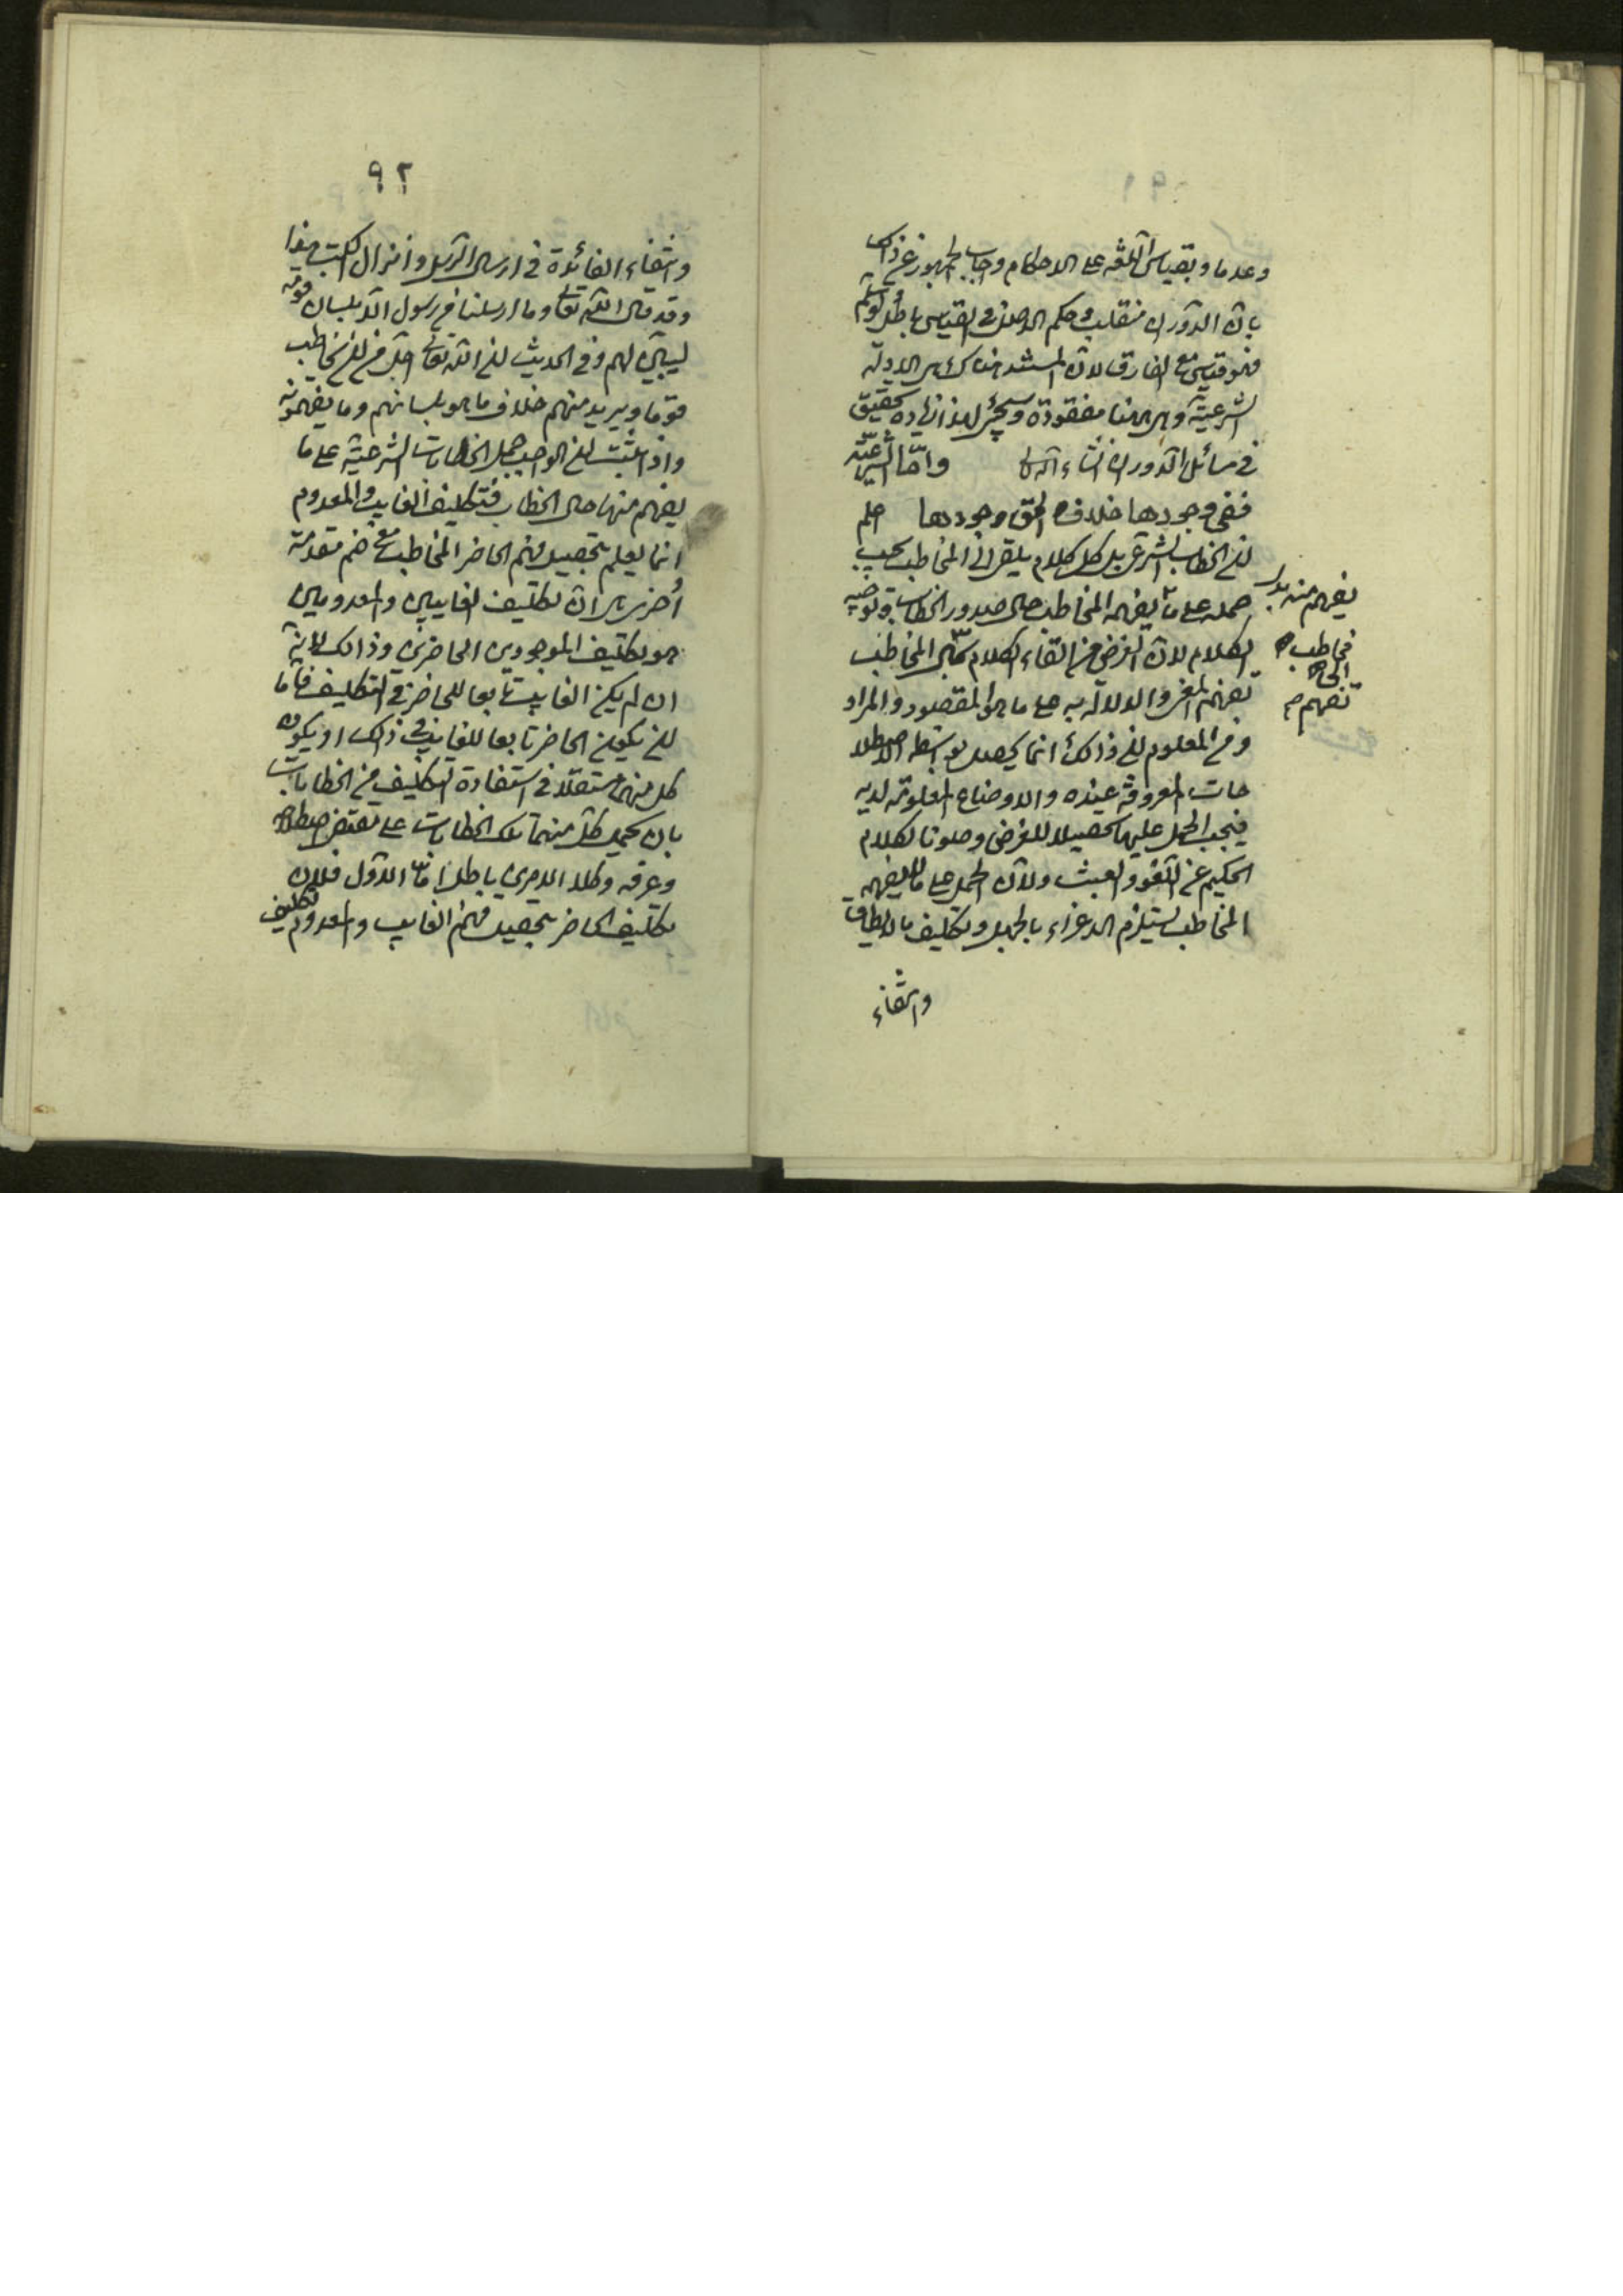 وعدما وبقياس اللغة على الاحكام واجاب الجمهور عن ذلك
بان الدوران منقلب وحكم الاصل في القياس باطل ولو سلم
فهو قياس مع الفارق لان المستند هناك هي الادلة
الشرعية وهي هنا مفقودة وسيجئ لهذا زيادة تحقيق
في مسائل الدوران انشاء الله واما الشرعية
ففي وجودها خلاف والحق وجودها اعلم
ان الخطاب الشرعي بل كل كلام يلقى الى المخاطب يجب
حمله على ما يفهمه المخاطب حال صدور الخطاب وتوجيه
يفهم منه
الكلام لان الغرض من القاء الكلام الى المخاطب
مخاطب
تفهيم المعنى والدلالة به على ما هو المقصود والمراد
تفهيم
ومن المعلوم ان ذلك انما يحصل بواسطة الاصطلا
حات المعروفة عنده والاوضاع المعلومة لديه
فيجب الحمل عليها تحصيلا للغرض وصونا لكلام
الحكيم عن اللغو والعبث ولان الحمل على ما لا يفهمه
المخاطب يستلزم الاغراء بالجهل وتكليف ما لا يطاق
وانتفاء
٩٢
وانتفاء الفائدة في ارسال الرسل وانزال الكتب هذا
وقد قال الله تعالى وما ارسلنا من رسول الا بلسان قومه
ليبين لهم وفي الحديث ان الله تعالى اجل من ان يخاطب
قوما ويريد منهم خلاف ما هو بلسانهم وما يفهمونه
واذا ثبت ان الواجب حمل الخطابات الشرعية على ما
يفهم منها حال الخطاب فتكليف الغايب والمعدوم
انما يعلم بتحصيل فهم الحاضر المخاطب مع ضم مقدمة
اخرى هي ان تكليف الغايبين والمعدومين
هو تكليف الموجودين الحاضرين وذلك لانه
ان لم يكن الغايب تابعا للحاضر في التكليف فاما
ان يكون الحاضر تابعا للغايب في ذلك او يكون
كل منهما مستقلا في استفادة التكليف من الخطابات
بان يحمل كل منهما تلك الخطابات على مقتضى اصطلاحه
وعرفه وكلا الامرين باطل اما الاول فلان
تكليف الحاضر بتحصيل فهم الغايب والمعدوم تكليف